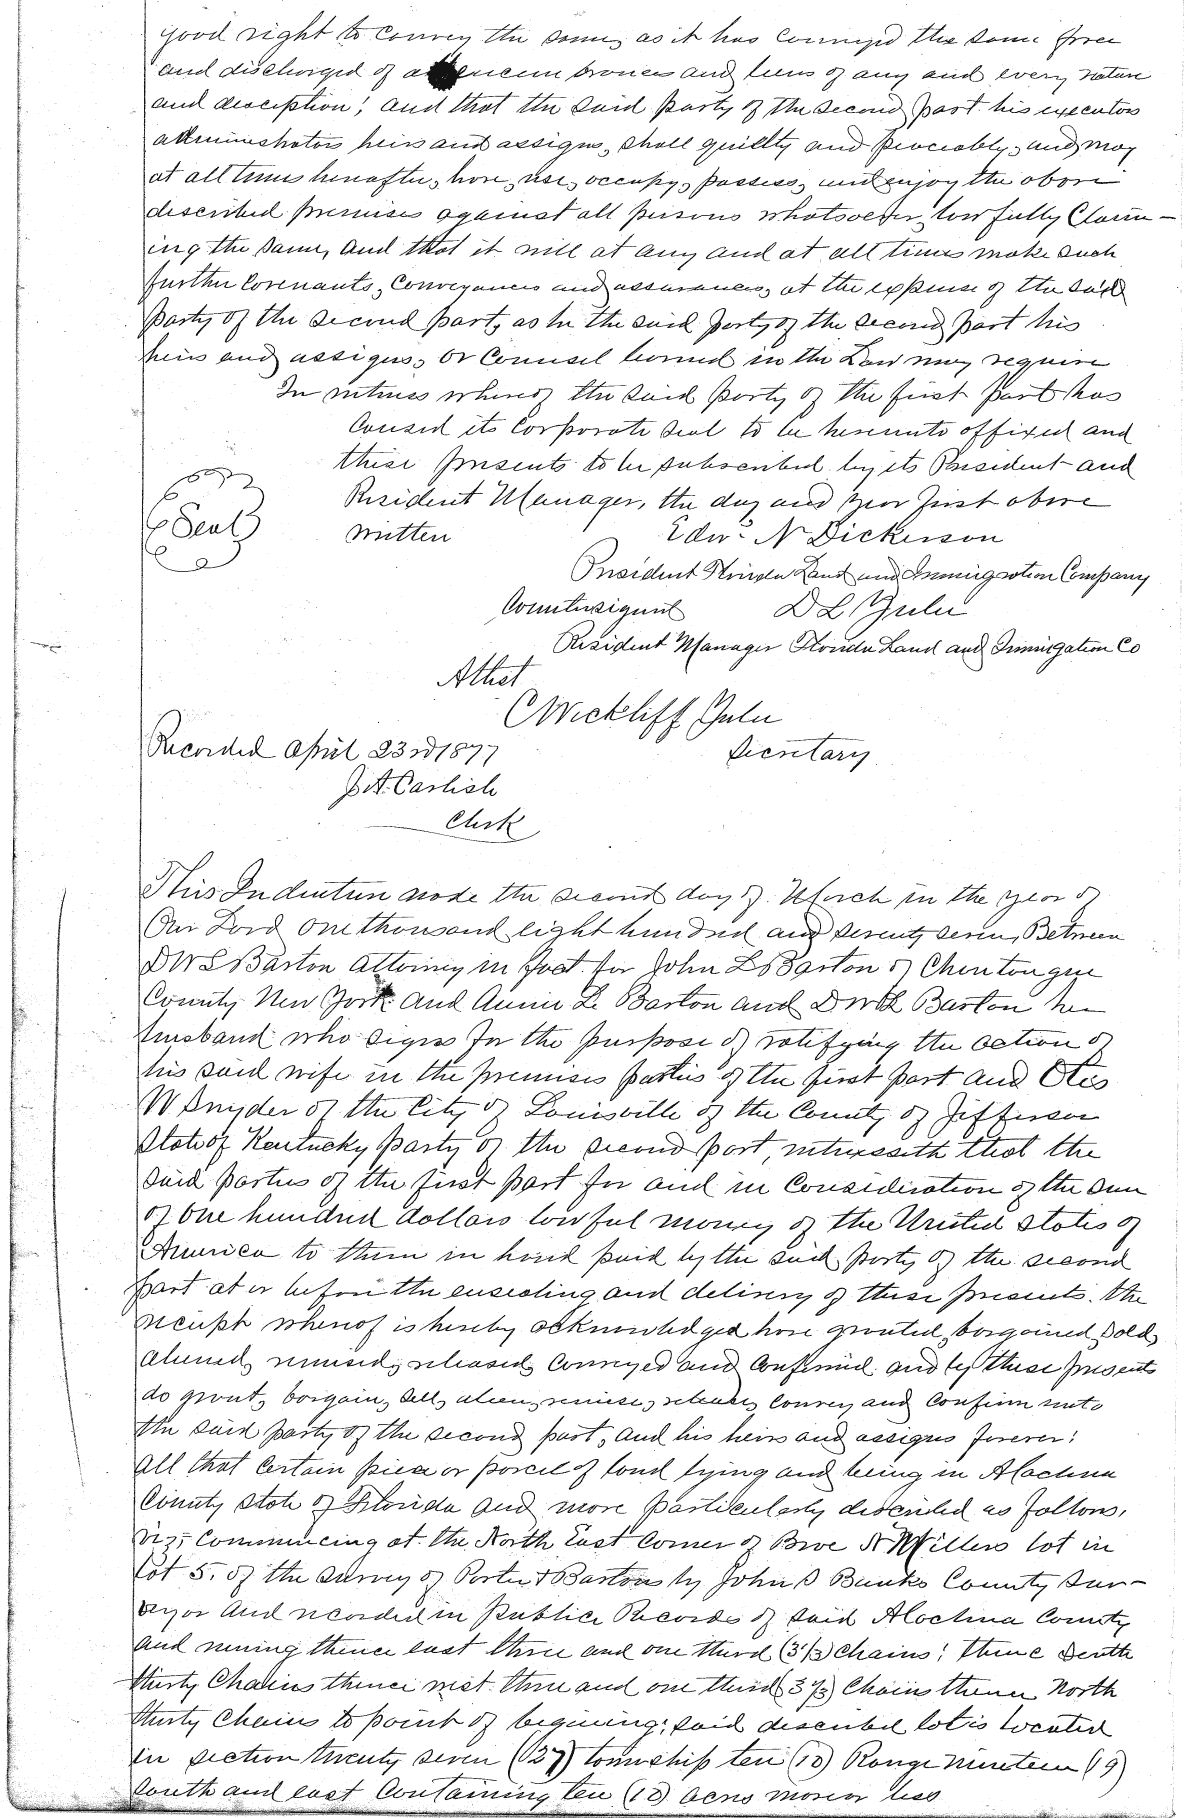 good right to convey the same, as it has conveyed the same free
and discharged of a encumbrances and liens of any and every nature
and desception; and that the said party of the second part his executors
administrators heirs and assigns, shall quietly and peaceably, and may
at all times hereafter, have, use, occupy, possess, and enjoy the above
described premises against all persons whatsoever, lawfully Claim-
ing the same, and that it will at any and at all times make such
further Covenants, Conveyances and assurances, at the expense of the said
party of the second part, as to the said party of the second part his
heirs and assigns, or Counsel learned in the Law may require
In witness whereof the said party of the first part has
Caused its Corporate Seal to be hereunto affixed and
these presents to be subscribed by its President and
Resident Manager, the day and year first above
Seal written Edw. N Dickerson
President Florida Land and Immigration Company
Countersigned D L Yulee
Resident Manager Florida Land and Immigation Co
Attest
C Wickliff Yulee
Recorded April 23rd 1877 Secretary
J A. Carlisle
Clerk
This Indenture made the second day of March in the year of
Our Lord One thousand eight hundred and seventy seven, Between
D W L Barton Attorney in fact for John L Barton of Chentongue
County New York and Annie L. Barton and D W L Barton her
husband who signs for the purpose of ratifying the action of
his said wife in the premises parties of the first part and Otis
W Snyder of the City of Louisville of the County of Jefferson
State of Kentucky party of the second part, witnesseth that the
said parties of the first part for and in Consideration of the sum
of One hundred dollars lawful money of the United States of
America to them in hand paid by the said party of the second
part at or before the ensealing and delivery of these presents. the
receipt whereof is hereby acknowledged have granted, bargained, Sold,
aliened, remised, released, Conveyed and Confirmed and by these presents
do grant, bargain, sell, alien, remise, release, Convey and Confirm unto
the said party of the second part, and his heirs and assigns forever;
all that Certain piece or parcel of land lying and being in Alachua
County State of Florida and more particularly described as follows,
viz; Commencing at the North East Corner of N Millers lot in
Lot 5. of the Survey of Porter & Bartons by John S Banks County Sur-
veyor And recorded in Public Records of said Alachua County
and runing thence east three and one third (3 1/3) chains; thence South
thirty Chains thence west three and one third (3 1/3) Chains thence North
thirty Chains to point of begining; said described lot is located
in section twenty seven (27) township ten (10) Range nineteen (19)
South and east Containing ten (10) acres more or less